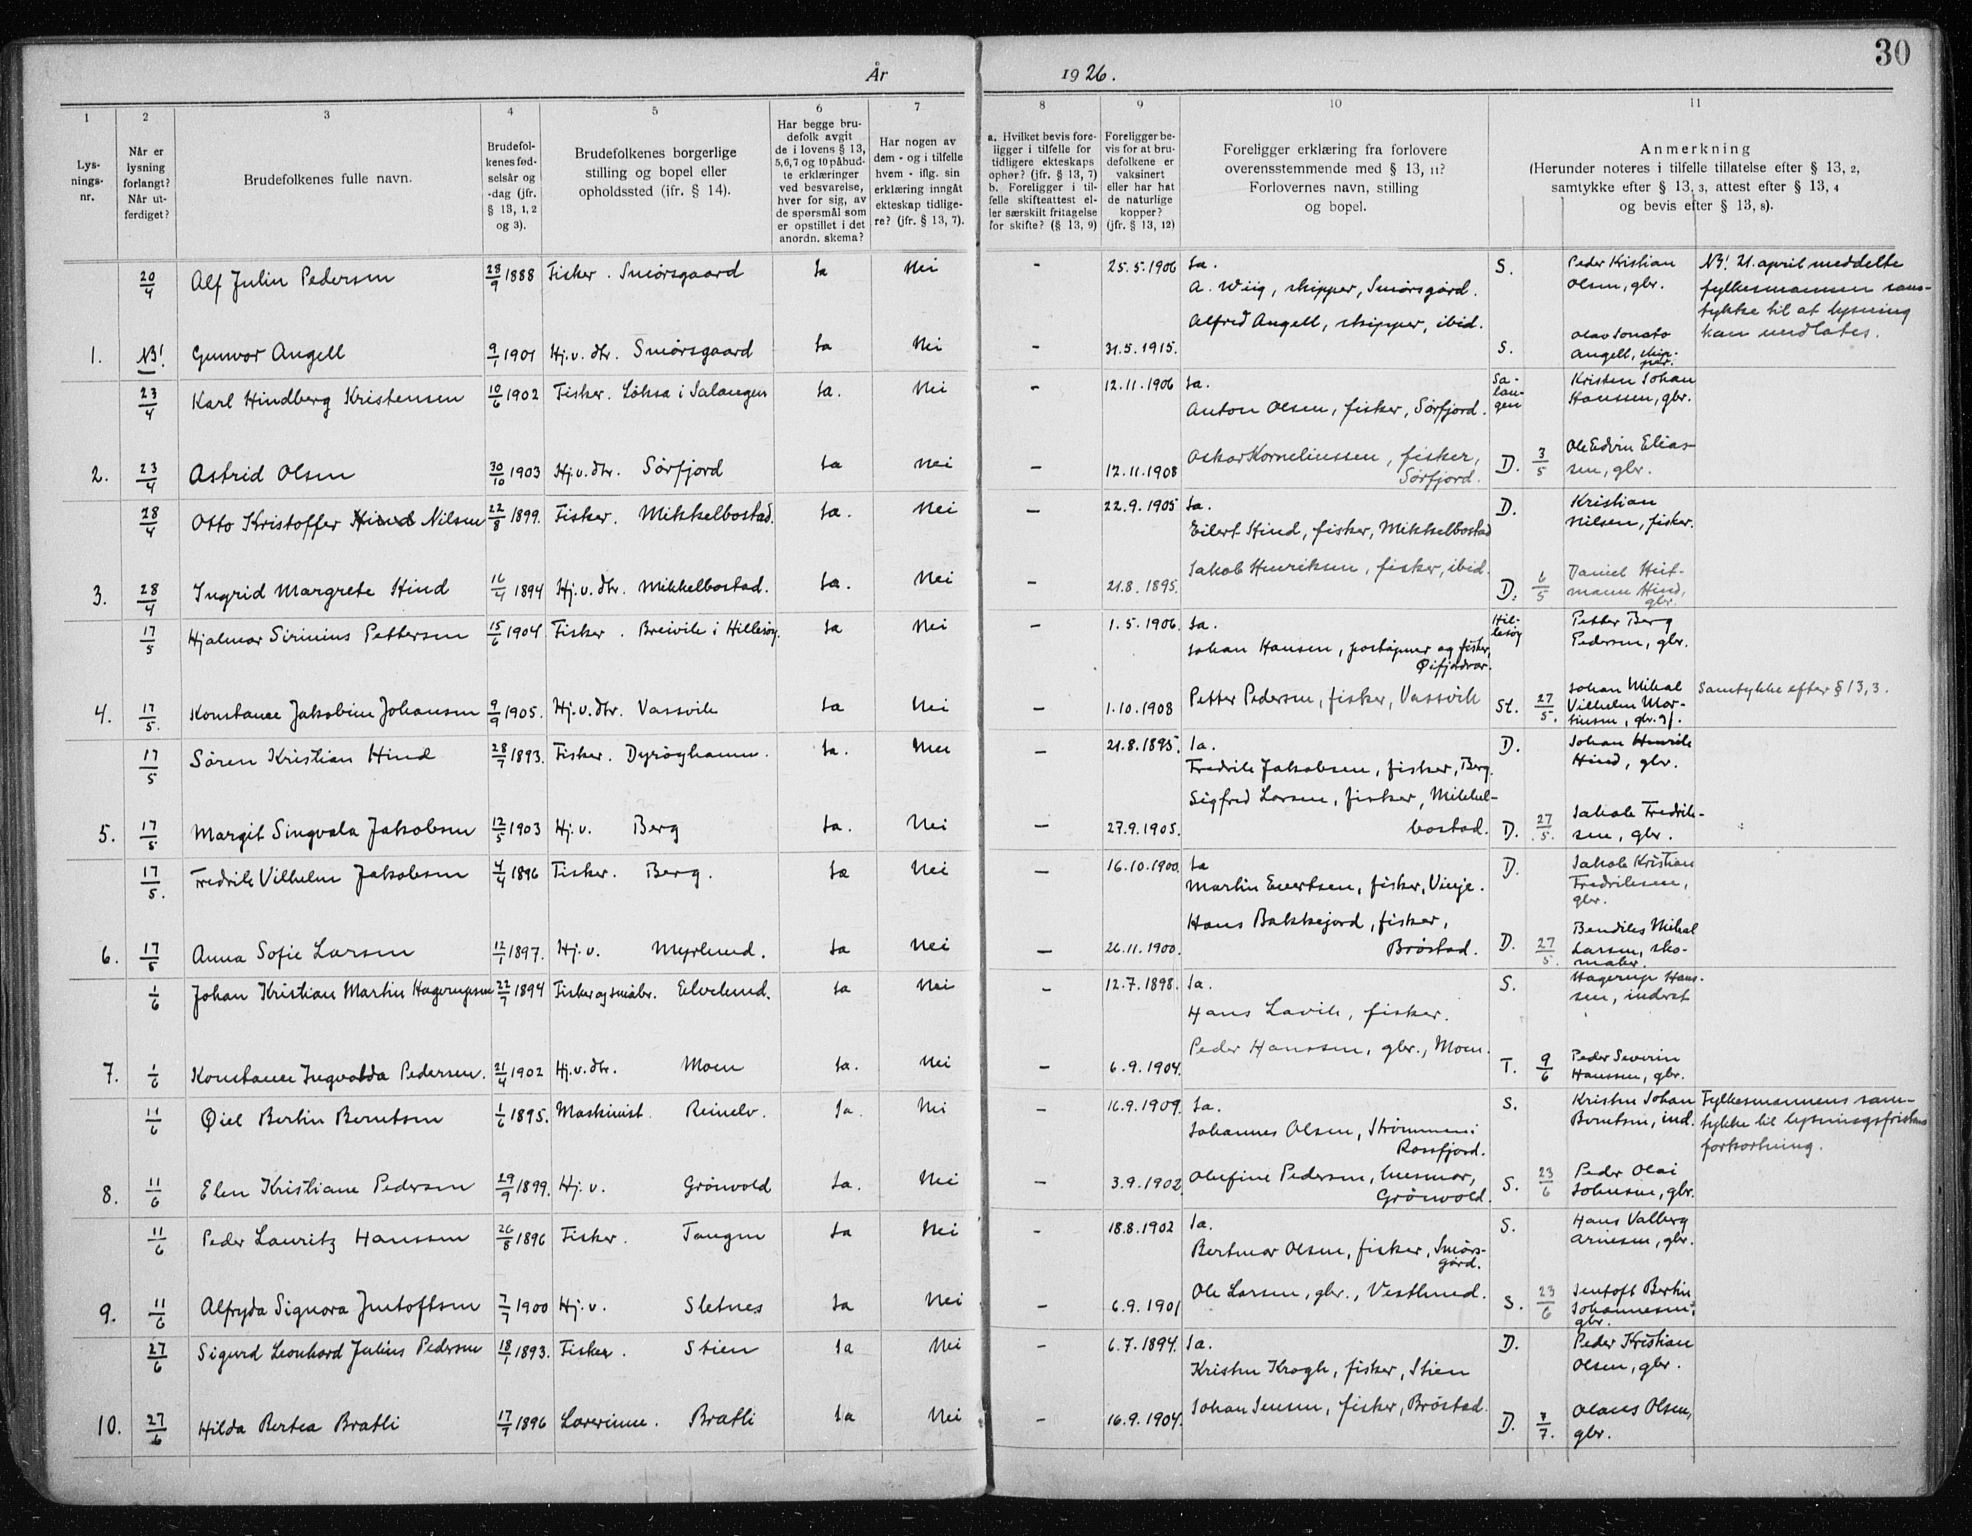 30
År 1926.
1 2 3 4 5 6 7 8 9 10 11
Lys-
nings-
nr.
Når er
lysning
forlangt?
Når ut-
ferdiget?
Brudefolkenes fulle navn.
Brudefol-
kenes fød-
selsår og
-dag (jfr.
§ 13, 1, 2
og 3).
Brudefolkenes borgerlige
stilling og bopel eller
opholdssted (ifr. § 14).
Har begge bru-
defolk avgit
de i lovens § 13,
5,6,7 og 10 påbud-
te erklæringer
ved besvarelse,
hver for sig, av
de spørsmål som
er opstillet i det
anordn. skema?
Har nogen av
dem - og i tilfelle
hvem - iflg. sin
erklæring inngåt
ekteskap tidlige-
re? (jfr. § 13, 7).
a. Hvilket bevis fore-
ligger i tilfelle for
tidligere ekteskaps
ophør? (jfr. § 13, 7)
b. Foreligger i til-
felle skifteattest el-
ler særskilt fritagelse
for skifte? (§ 13, 9)
Foreligger be-
vis for at bru-
defolkene er
vaksinert
eller har hat
de naturlige
kopper?
(jfr. § 13, 12)
Foreligger erklæring fra forlovere
overensstemmende med § 13, 11?
Forlovernes navn, stilling
og bopel.
Anmerkning
(Herunder noteres i tilfelle tillatelse efter § 13, 2,
samtykke efter § 13, 3, attest efter § 13, 4
og bevis efter § 13, 8).
20/4 Alf Julin Pedersen 28/9 1888 Fisker. Smørsgaard Ja Nei - 25.5.1906 Ja. S. Peder Kristian NB! 21. april meddelte
A. Wiig, skipper, Smørsgård. Olsen, gbr. fylkesmannen sam-
Alfred Angell, skipper, ibid. tykke til at lysning
1. NB! Gunvor Angell 9/1 1901 Hj.v. dtr. Smørsgaard Ja Nei - 31.5.1915. S. Olav Jonato kan undlates.
Angell, skip-
per.
23/4 Karl Hindberg Kristensen 10/6 1902 Fisker. Løksa i Salangen Ja. Nei - 12.11.1906 Ja. Sa-
lan-
gen Kristen Johan
Anton Olsen, fisker, Sørfjord. Hanssen, gbr.
2. 23/4 Astrid Olsen 30/10 1903 Hj.v.dtr. Sørfjord Ja Nei - 12.11.1908 Oskar Korneliussen, fisker, D. 3/5 Ole Edvin Elias-
Sørfjord. sen, gbr.
28/4 Otto Kristoffer Nilsen 22/8 1899. Fisker. Mikkelbostad. Ja. Nei - 22.9.1905 Ja. D. Kristian
Eilert Hind, fisker, Mikkelbostad Nilsen, fisker.
3. 28/4 Ingrid Margrete Hind 16/4 1894 Hj.v.dtr. Mikkelbostad. Ja. Nei - 21.8.1895. Jakob Henriksen, fisker, ibid. D. 6/5 Daniel Heit-
mann Hind,
gbr.
17/5 Hjalmar Sirinius Pettersen 15/6 1904 Fisker. Breivik i Hillesøy. Ja Nei - 1.5.1906. Ja. Hil-
lesøy Petter Berg
Johan Hansen, poståpner og fisker, Pedersen, gbr.
Øifjordvær.
4. 17/5. Konstance Jakobine Johansen 9/9 1905. Hj.v.dtr. Vassvik Ja Nei - 1.10.1908 Petter Pedersen, fisker, Vassvik St. 27/5. Johan Mikal Samtykke efter § 13,3.
Vilhelm Mar-
tinsen, gbr. og f.
17/5 Søren Kristian Hind 28/7 1893. Fisker. Dyrøyhamn. Ja. Nei - 21.8.1895. Ja. D. Johan Henrik
Fredrik Jakobsen, fisker, Berg. Hind, gbr.
Sigfred Larsen, fisker, Mikkel-
5. 17/5 Margit Singvala Jakobsen 12/5 1903 Hj.v. Berg Ja. Nei - 27.9.1905. bostad. D. 27/5. Jakob Fredrik-
sen, gbr.
17/5. Fredrik Vilhelm Jakobsen 4/4 1896 Fisker. Berg. Ja Nei - 16.10.1900. Ja D. Jakob Kristian
Martin Evertsen, fisker, Vinje. Fredriksen,
gbr.
Hans Bakkejord, fisker,
6. 17/5 Anna Sofie Larsen 12/1 1897. Hj.v. Myrlund. Ja Nei - 26.11.1900. Brøstad. D. 27/5. Bendiks Mikal
Larsen, sko-
maker.
1/6 Johan Kristian Martin Hagerupsen 22/7 1894 Fisker og småbr. Elvelund. Ja Nei - 12.7.1898. Ja. S. Hagerup Hans-
Hans Lavik, fisker. sen, inderst
Peder Hanssen, gbr., Moen.
7. 1/6 Konstance Ingvalda Pedersen. 21/4 1902 Hj.v.dtr. Moen Ja. Nei - 6.9.1904. T. 9/6 Peder Severin
Hanssen, gbr.
11/6 Øiel Bertin Berntsen 1/6 1895. Maskinist. Reinelv. Ja. Nei - 16.9.1909. Ja. S. Kristen Johan Fylkesmannens sam-
Johannes Olsen, Strømmen i Berntsen, ind. tykke til lysningsfristens
Rossfjord. forkortning.
8. 11/6 Elen Kristiane Pedersen 29/9 1899. Hj.v. Grønvold Ja. Nei - 3.9.1902 Olufine Pedersen, husmor, S. 23/6 Peder Olai
Grønvold. Johnsen, gbr.
11/6 Peder Lauritz Hanssen 26/8 1896 Fisker. Tangen Ja Nei - 18.8.1902 Ja. S. Hans Valberg
Bertmar Olsen, fisker, Smørs-
gård. Arnesen, gbr.
9. 11/6 Alfryda Signora Jentoftsen 7/7 1900 Hj.v. Sletnes Ja Nei - 6.9.1901 Ole Larsen, gbr., Vestlund. S. 23/6 Jentoft Bertin
Johannesen,
gbr.
27/6 Sigurd Leonhard Julius Pedersen 18/1 1893. Fisker. Stien Ja Nei - 6.7.1894. Ja. D. Peder Kristian
Kristen Krogh, fisker, Stien Olsen, gbr.
10. 27/6 Hilda Bertea Bratli 17/7 1896 Lærerinne. Bratli Ja Nei - 16.9.1904. Johan Jensen, fisker, Brøstad. D. 7/7. Olaus Olsen,
gbr.